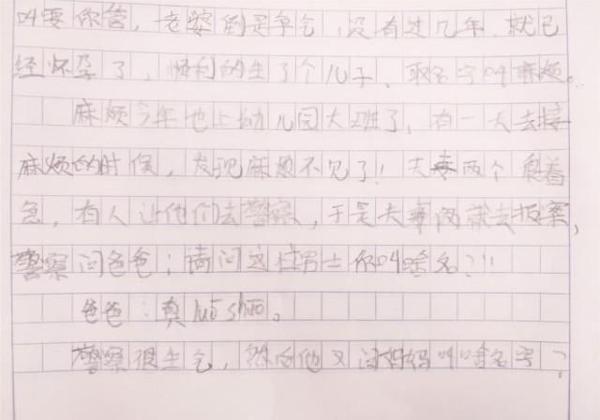 叫要你管，老婆倒是争气，没有过几年，就已
经怀孕了，顺利的生了个儿子，取名字叫麻烦。
麻烦今年也上幼儿园大班了，有一天去接
麻烦的时候，发现麻烦不见了！夫妻两个急着
急，有人让他们去警察，于是夫妻两就去报案，
警察问爸爸：请问这位男士你叫啥名？!!
爸爸：真luō suo。
警察很生气，然后他又问妈妈叫啥名字？